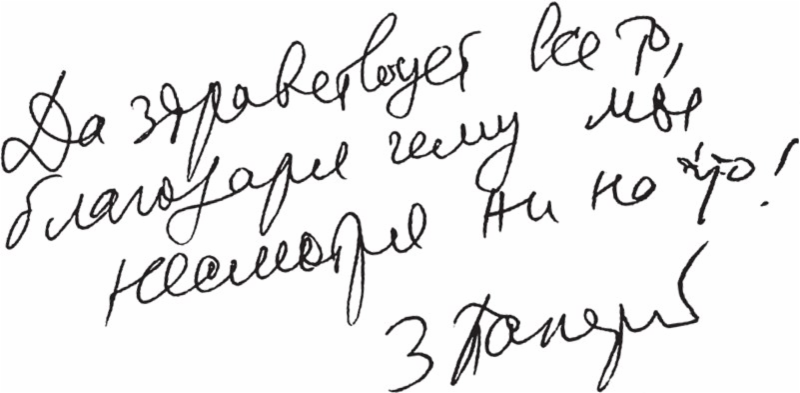 Да здравствует все то,
благодаря чему мы
несмотря ни на что!
З Паперный